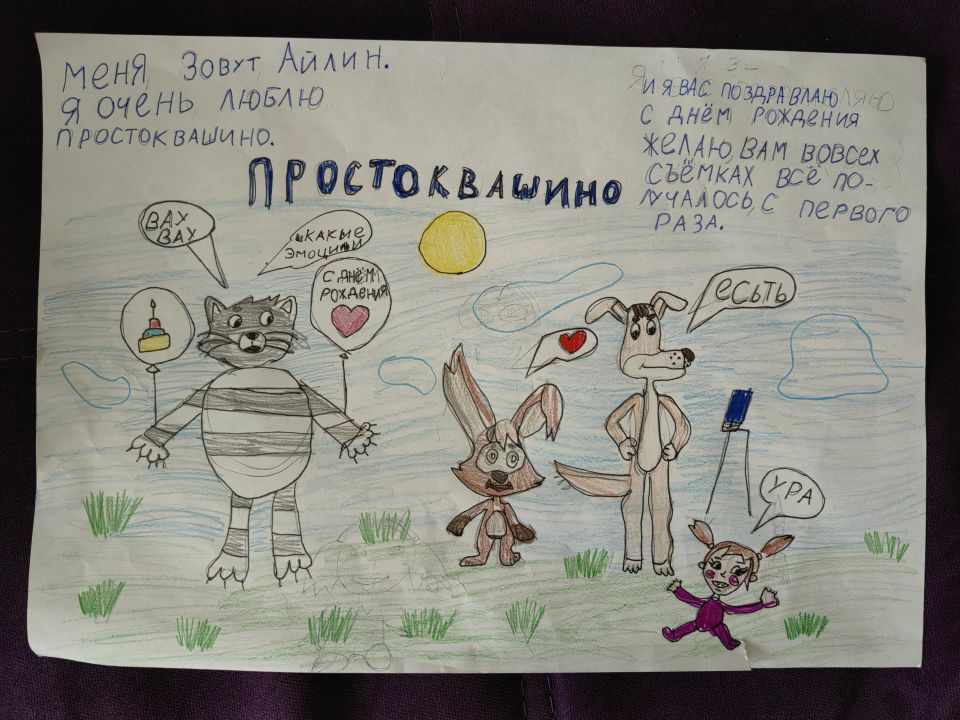 МЕНЯ ЗОВУТ АЙЛИН.
Я ОЧЕНЬ ЛЮБЛЮ
ПРОСТОКВАШИНО.
И Я ВАС ПОЗДРАВЛАЮ
С ДНЁМ РОЖДЕНИЯ
ЖЕЛАЮ ВАМ ВОВСЕХ
СЪЁМКАХ ВСЁ ПО-
ЛУЧАЛОСЬ С ПЕРВОГО
РАЗА.
ПРОСТОКВАШИНО
ВАХ
ВАХ
КАКЫЕ
ЭМОЦИИ
С ДНЁМ
РОЖДЕНИЯ
ЕСЬТЬ
УРА